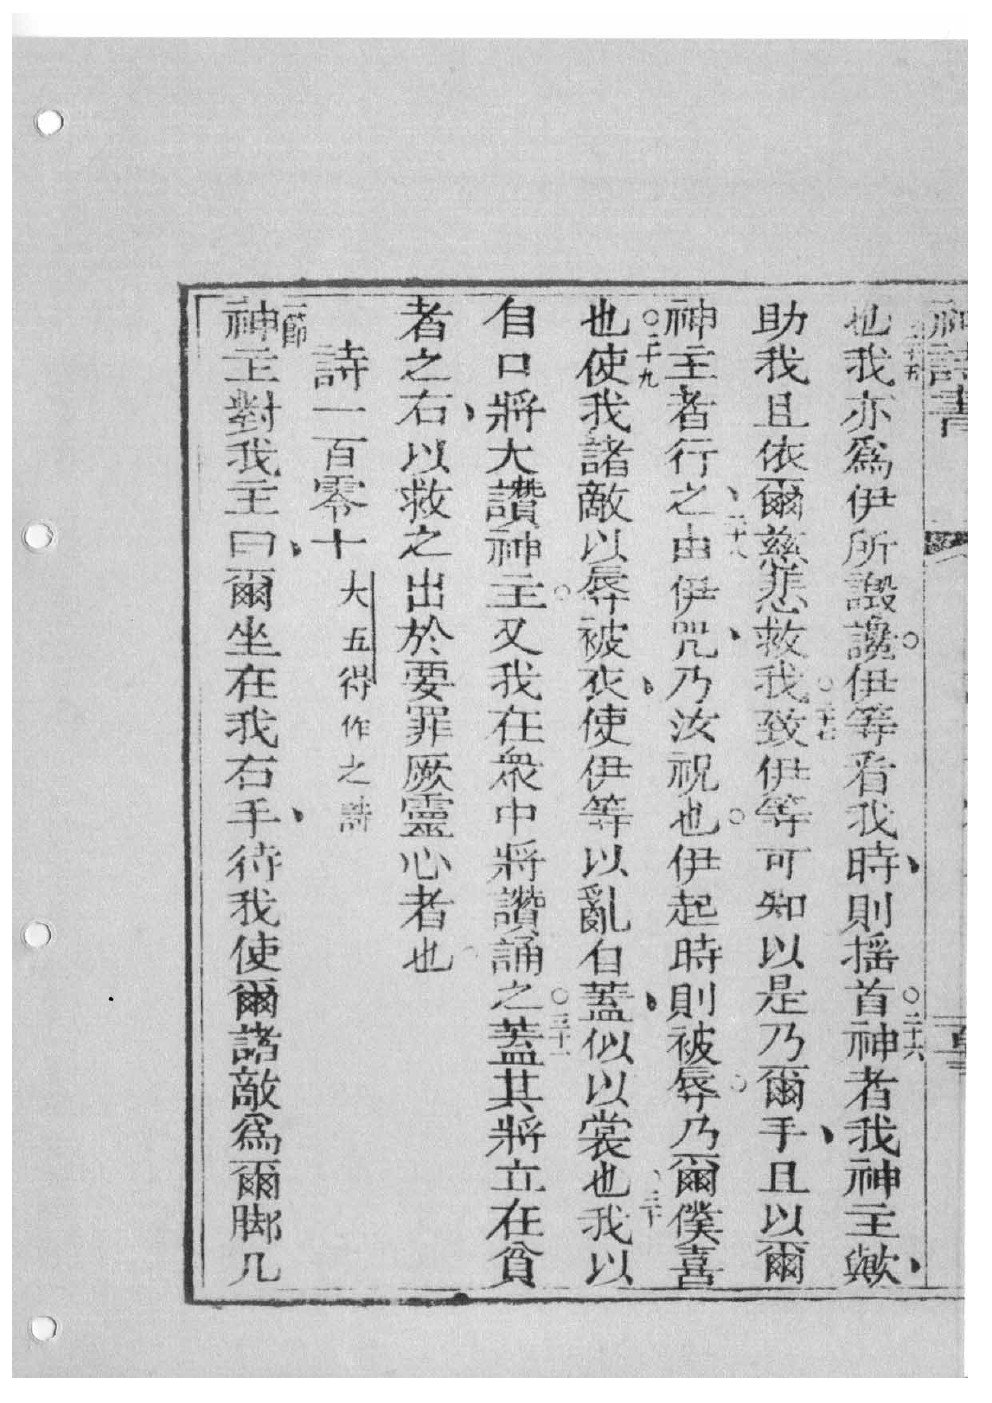 神詩書
也二十五我亦爲伊所譭讒伊等看我時則搖首二十六神者我神主歟
助我且依爾慈悲救我二十七致伊等可知以是乃爾手且以爾
神主者行之二十八由伊咒乃汝祝也伊起時則被辱乃爾僕喜
也二十九使我諸敵以辱被衣使伊等以亂自蓋似以裳也三十我以
自口將大讚神主又我在衆中將讚誦之三十一蓋其將立在貧
者之右以救之出於要罪厥靈心者也
詩一百零十 大五得作之詩
一節神主對我主曰爾坐在我右手待我使爾諸敵爲爾脚几